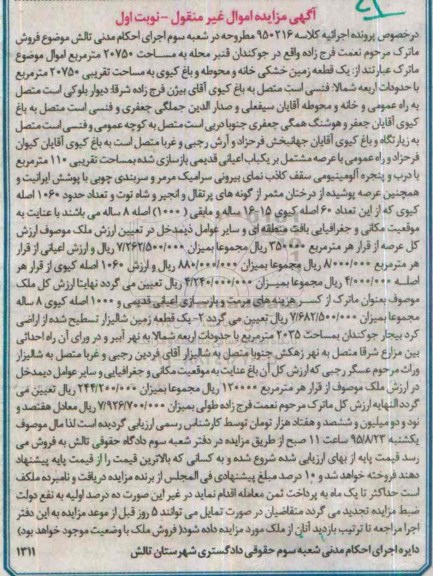 آگهی مزایده اموال غیر منقول - نوبت اول
درخصوص پرونده اجرائیه کلاسه ۹۵۰۲۱۶ مطروحه در شعبه سوم اجرای احکام مدنی تالش موضوع فروش
ماترک مرحوم نعمت فرج زاده واقع در جوکندان قنبر محله به مساحت ۲۰۷۵۰ مترمربع اموال موضوع
ماترک عبارتند از: یک قطعه زمین خشکی خانه و محوطه و باغ کیوی به مساحت تقریبی ۲۰۷۵۰ مترمربع
با حدودات اربعه شمالا: فنسی است متصل به باغ کیوی آقای بیژن فرج زاده شرقا: دیوار بلوکی است متصل
به راه عمومی و خانه و محوطه آقایان سیفعلی و صدر الدین جملگی جعفری و فنسی است متصل به باغ
کیوی آقایان جعفر و هوشنگ همگی جعفری جنوبا دربی است متصل به کوچه عمومی و فنسی است متصل
به زیارتگاه و باغ کیوی آقایان جهانبخش فرحزاد و آرش رجبی و غربا متصل است به باغ کیوی آقایان کیوان
فرحزاد و راه عمومی با عرصه مشتمل بر یکباب اعیانی قدیمی بازسازی شده بمساحت تقریبی ۱۱۰ مترمربع
با درب و پنجره آلومینیومی سقف کاذب نمای بیرونی سرامیک مرمر و سربندی چوبی با پوشش ایرانیت و
همچنین عرصه پوشیده از درختان مثمر از گونه های پرتقال و انجیر و شاه توت و تعداد حدود ۱۰۶۰ اصله
کیوی که از این تعداد ۶۰ اصله کیوی ۱۵-۱۶ ساله و مابقی (۱۰۰۰) اصله ۸ ساله می باشند با عنایت به
موقعیت مکانی و جغرافیایی بافت منطقه ای و سایر عوامل ذیمدخل در تعیین ارزش ملک موصوف ارزش
کل عرصه از قرار هر مترمربع ۳۵۰۰۰۰ ریال مجموعا بمیزان ۷/۲۶۲/۵۰۰/۰۰۰ ریال و ارزش اعیانی از قرار
هر مترمربع ۸/۰۰۰/۰۰۰ ریال مجموعا بمیزان ۸۸۰/۰۰۰/۰۰۰ ریال و ارزش ۱۰۶۰ اصله کیوی از قرار هر
اصله ۴/۰۰۰/۰۰۰ ریال مجموعا بمیزان ۴/۲۴۰/۰۰۰/۰۰۰ ریال تعیین می گردد نهایتا ارزش کل ملک
موصوف بعنوان ماترک از کسر هزینه های مرمت و بازسازی اعیانی قدیمی و ۱۰۰۰ اصله کیوی ۸ ساله
مجموعا بمیزان ۷/۶۸۲/۵۰۰/۰۰۰ ریال تعیین می گردد ۲- یک قطعه زمین شالیزار تسطیح شده از اراضی
کرد بیجار جوکندان بمساحت ۲۰۳۵ مترمربع با حدودات اربعه شمالا به نهر آببر و در ورای آن راه احداثی
بین مزارع شرقا متصل به نهر زهکش جنوبا متصل به شالیزار آقای فردین رجبی و غربا متصل به شالیزار
وراث مرحوم عسگر رجبی که ارزش کل آن باغ عنایت به موقعیت مکانی و جغرافیایی و سایر عوامل ذیمدخل
در ارزش ملک موصوف از قرار هر مترمربع ۱۲۰۰۰۰ ریال مجموعا بمیزان ۲۴۴/۲۰۰/۰۰۰ ریال تعیین می
گردد النهایه ارزش کل ماترک مرحوم نعمت فرج زاده طولی بمیزان ۷/۹۲۶/۷۰۰/۰۰۰ ریال معادل هفتصد و
نود و دو میلیون و ششصد و هفتاد هزار تومان توسط کارشناس رسمی ارزیابی گردیده است لذا مال موصوف
یکشنبه ۹۵/۸/۲۳ ساعت ۱۱ صبح از طریق مزایده در دفتر شعبه سوم دادگاه حقوقی تالش به فروش می
رسد قیمت پایه از بهای ارزیابی شده شروع شده و به کسانی که بالاترین قیمت را از قیمت پایه پیشنهاد
دهند فروخته خواهد شد و ۱۰ درصد مبلغ پیشنهادی فی المجلس از برنده مزایده دریافت و نامبرده مکلف
است حداکثر تا یک ماه به پرداخت ثمن معامله اقدام نماید در غیر این صورت ده درصد اولیه به نفع دولت
ضبط مزایده تجدید می گردد متقاضیان در صورت تمایل می توانند ۵ روز قبل از موعد مزایده به این دفتر
اجرا مراجعه تا ترتیب بازدید آنان از ملک مورد مزایده داده شود( فروش ملک با وضعیت موجود خواهد بود)
دایره اجرای احکام مدنی شعبه سوم حقوقی دادگستری شهرستان تالش ۱۳۱۱